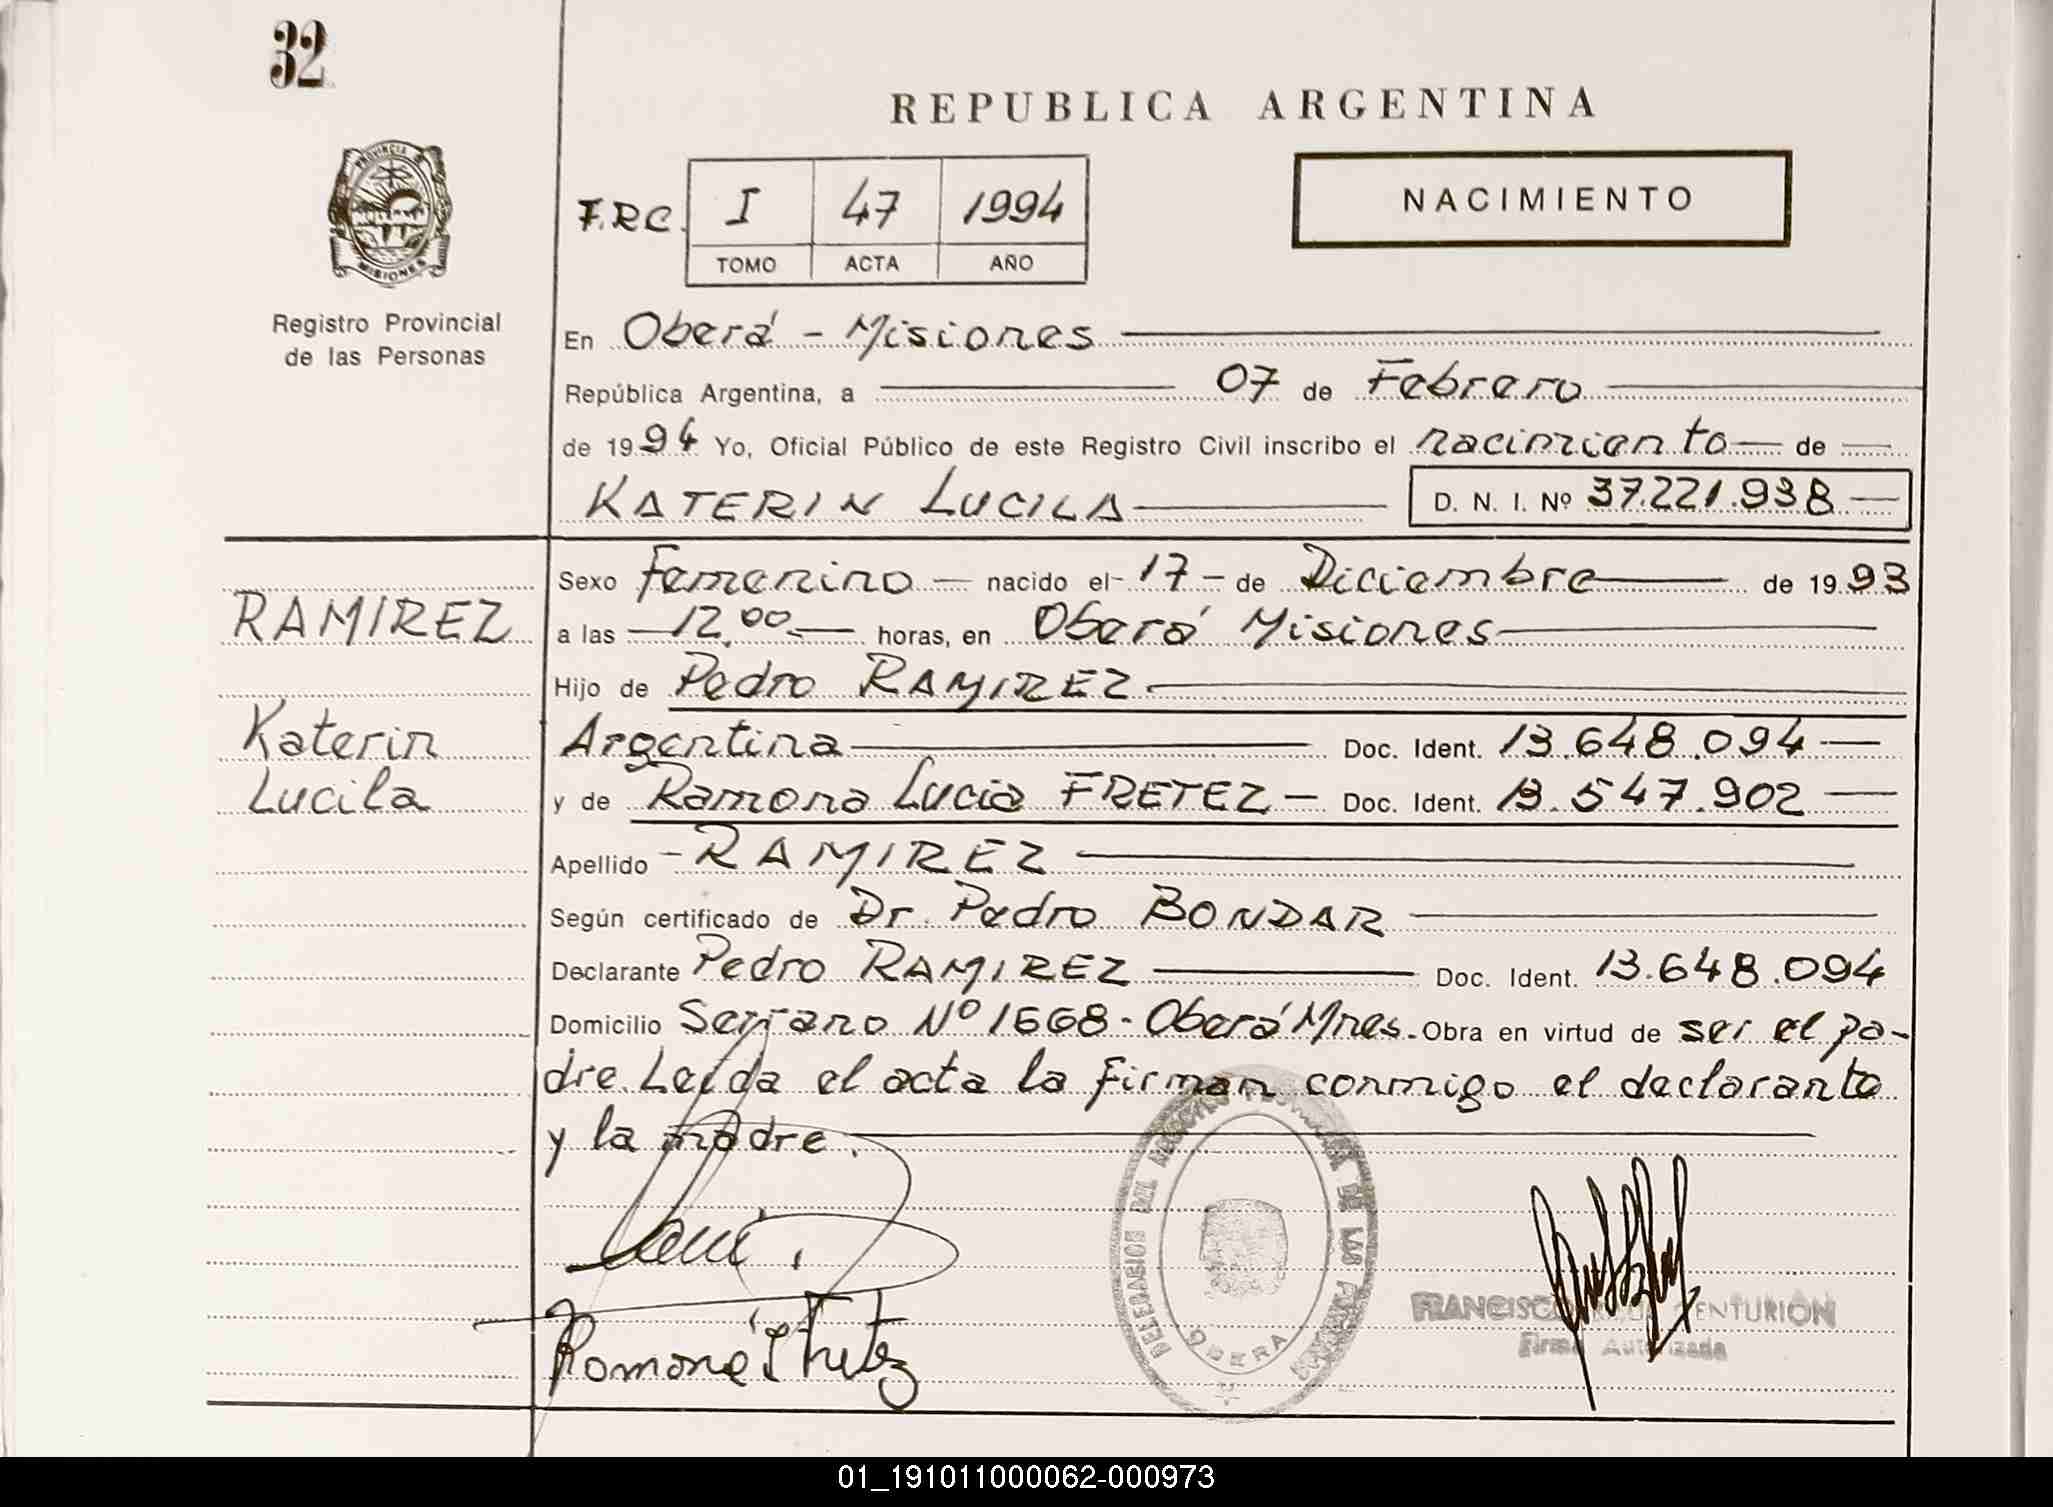 32
REPUBLICA ARGENTINA
PROVINCIA
MISIONES
Registro Provincial
de las Personas
F.R.C. I 47 1994
TOMO ACTA AÑO
NACIMIENTO
En Oberá - Misiones
República Argentina, a 07 de Febrero
de 1994 Yo, Oficial Público de este Registro Civil inscribo el nacimiento de
KATERIN LUCILA D. N. I. Nº 37.221.938
Sexo Femenino nacido el 17 de Diciembre de 1993
RAMIREZ
a las 12,00 horas, en Oberá Misiones
Hijo de Pedro RAMIREZ
Katerin
Argentina Doc. Ident. 13.648.094
Lucila
y de Ramona Lucia FRETEZ - Doc. Ident. 13.547.902
Apellido - RAMIREZ
Según certificado de Dr. Pedro BONDAR
Declarante Pedro RAMIREZ Doc. Ident. 13.648.094
Domicilio Serrano Nº 1668 - Oberá Mnes. Obra en virtud de ser el pa-
dre. Leída el acta la firman conmigo el declarante
y la madre.
DELEGACION DEL REGISTRO PROVINCIAL DE LAS PERSONAS
OBERA
FRANCISCO CENTURION
Firma Autorizada
01_191011000062-000973